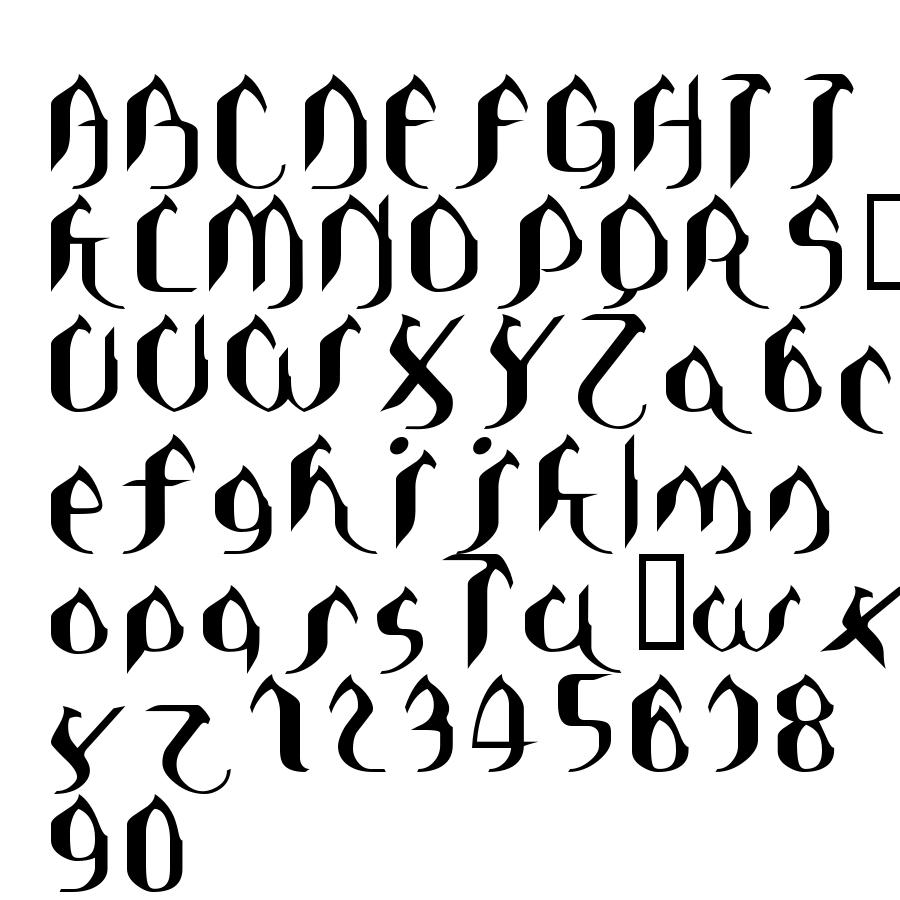 ABCDEFGHIJ
KLMNOPQRS
UVWXYZabc
efghijklmn
opqrstu wx
yz12345678
90